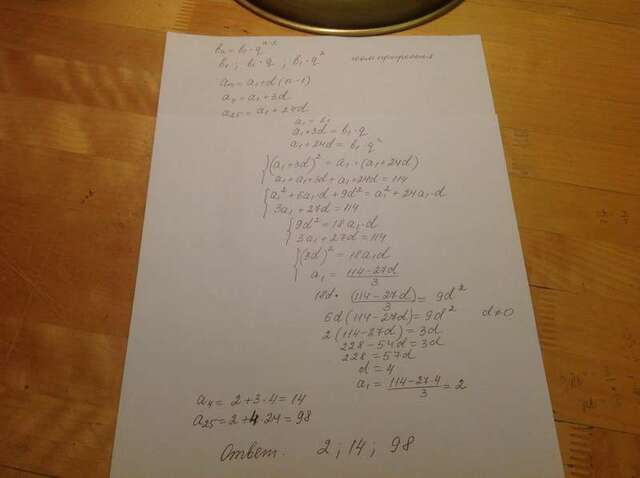 bₙ = b₁ · qⁿ⁻¹
b₁ ; b₁·q ; b₁·q² геом прогрессия
aₙ = a₁ + d (n-1)
a₄ = a₁ + 3d
a₂₅ = a₁ + 24d
a₁ = b₁
a₁ + 3d = b₁ · q
a₁ + 24d = b₁ · q²
{ (a₁+3d)² = a₁ · (a₁+24d)
a₁ + a₁ + 3d + a₁ + 24d = 114
{ a₁² + 6a₁·d + 9d² = a₁² + 24a₁·d
3a₁ + 27d = 114
{ 9d² = 18a₁·d
3a₁ + 27d = 114
{ (3d)² = 18a₁d
a₁ = (114-27d)/3
18d · (114-27d)/3 = 9d²
6d (114-27d) = 9d² d≠0
2 (114-27d) = 3d
228 - 54d = 3d
228 = 57d
d = 4
a₁ = (114-27·4)/3 = 2
a₄ = 2+3·4 = 14
a₂₅ = 2+4·24 = 98
Ответ. 2 ; 14 ; 98